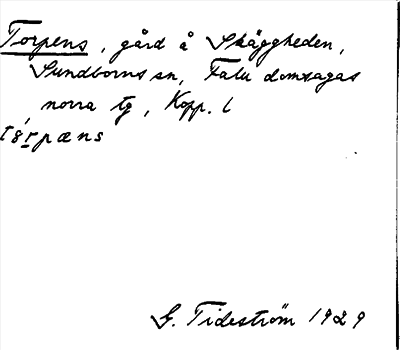 Torpens, gård å Skäggheden,
Sundborns sn, Falu domsagas
norra tg, Kopp. l
tǫ́rpæns
G. Tideström 1929